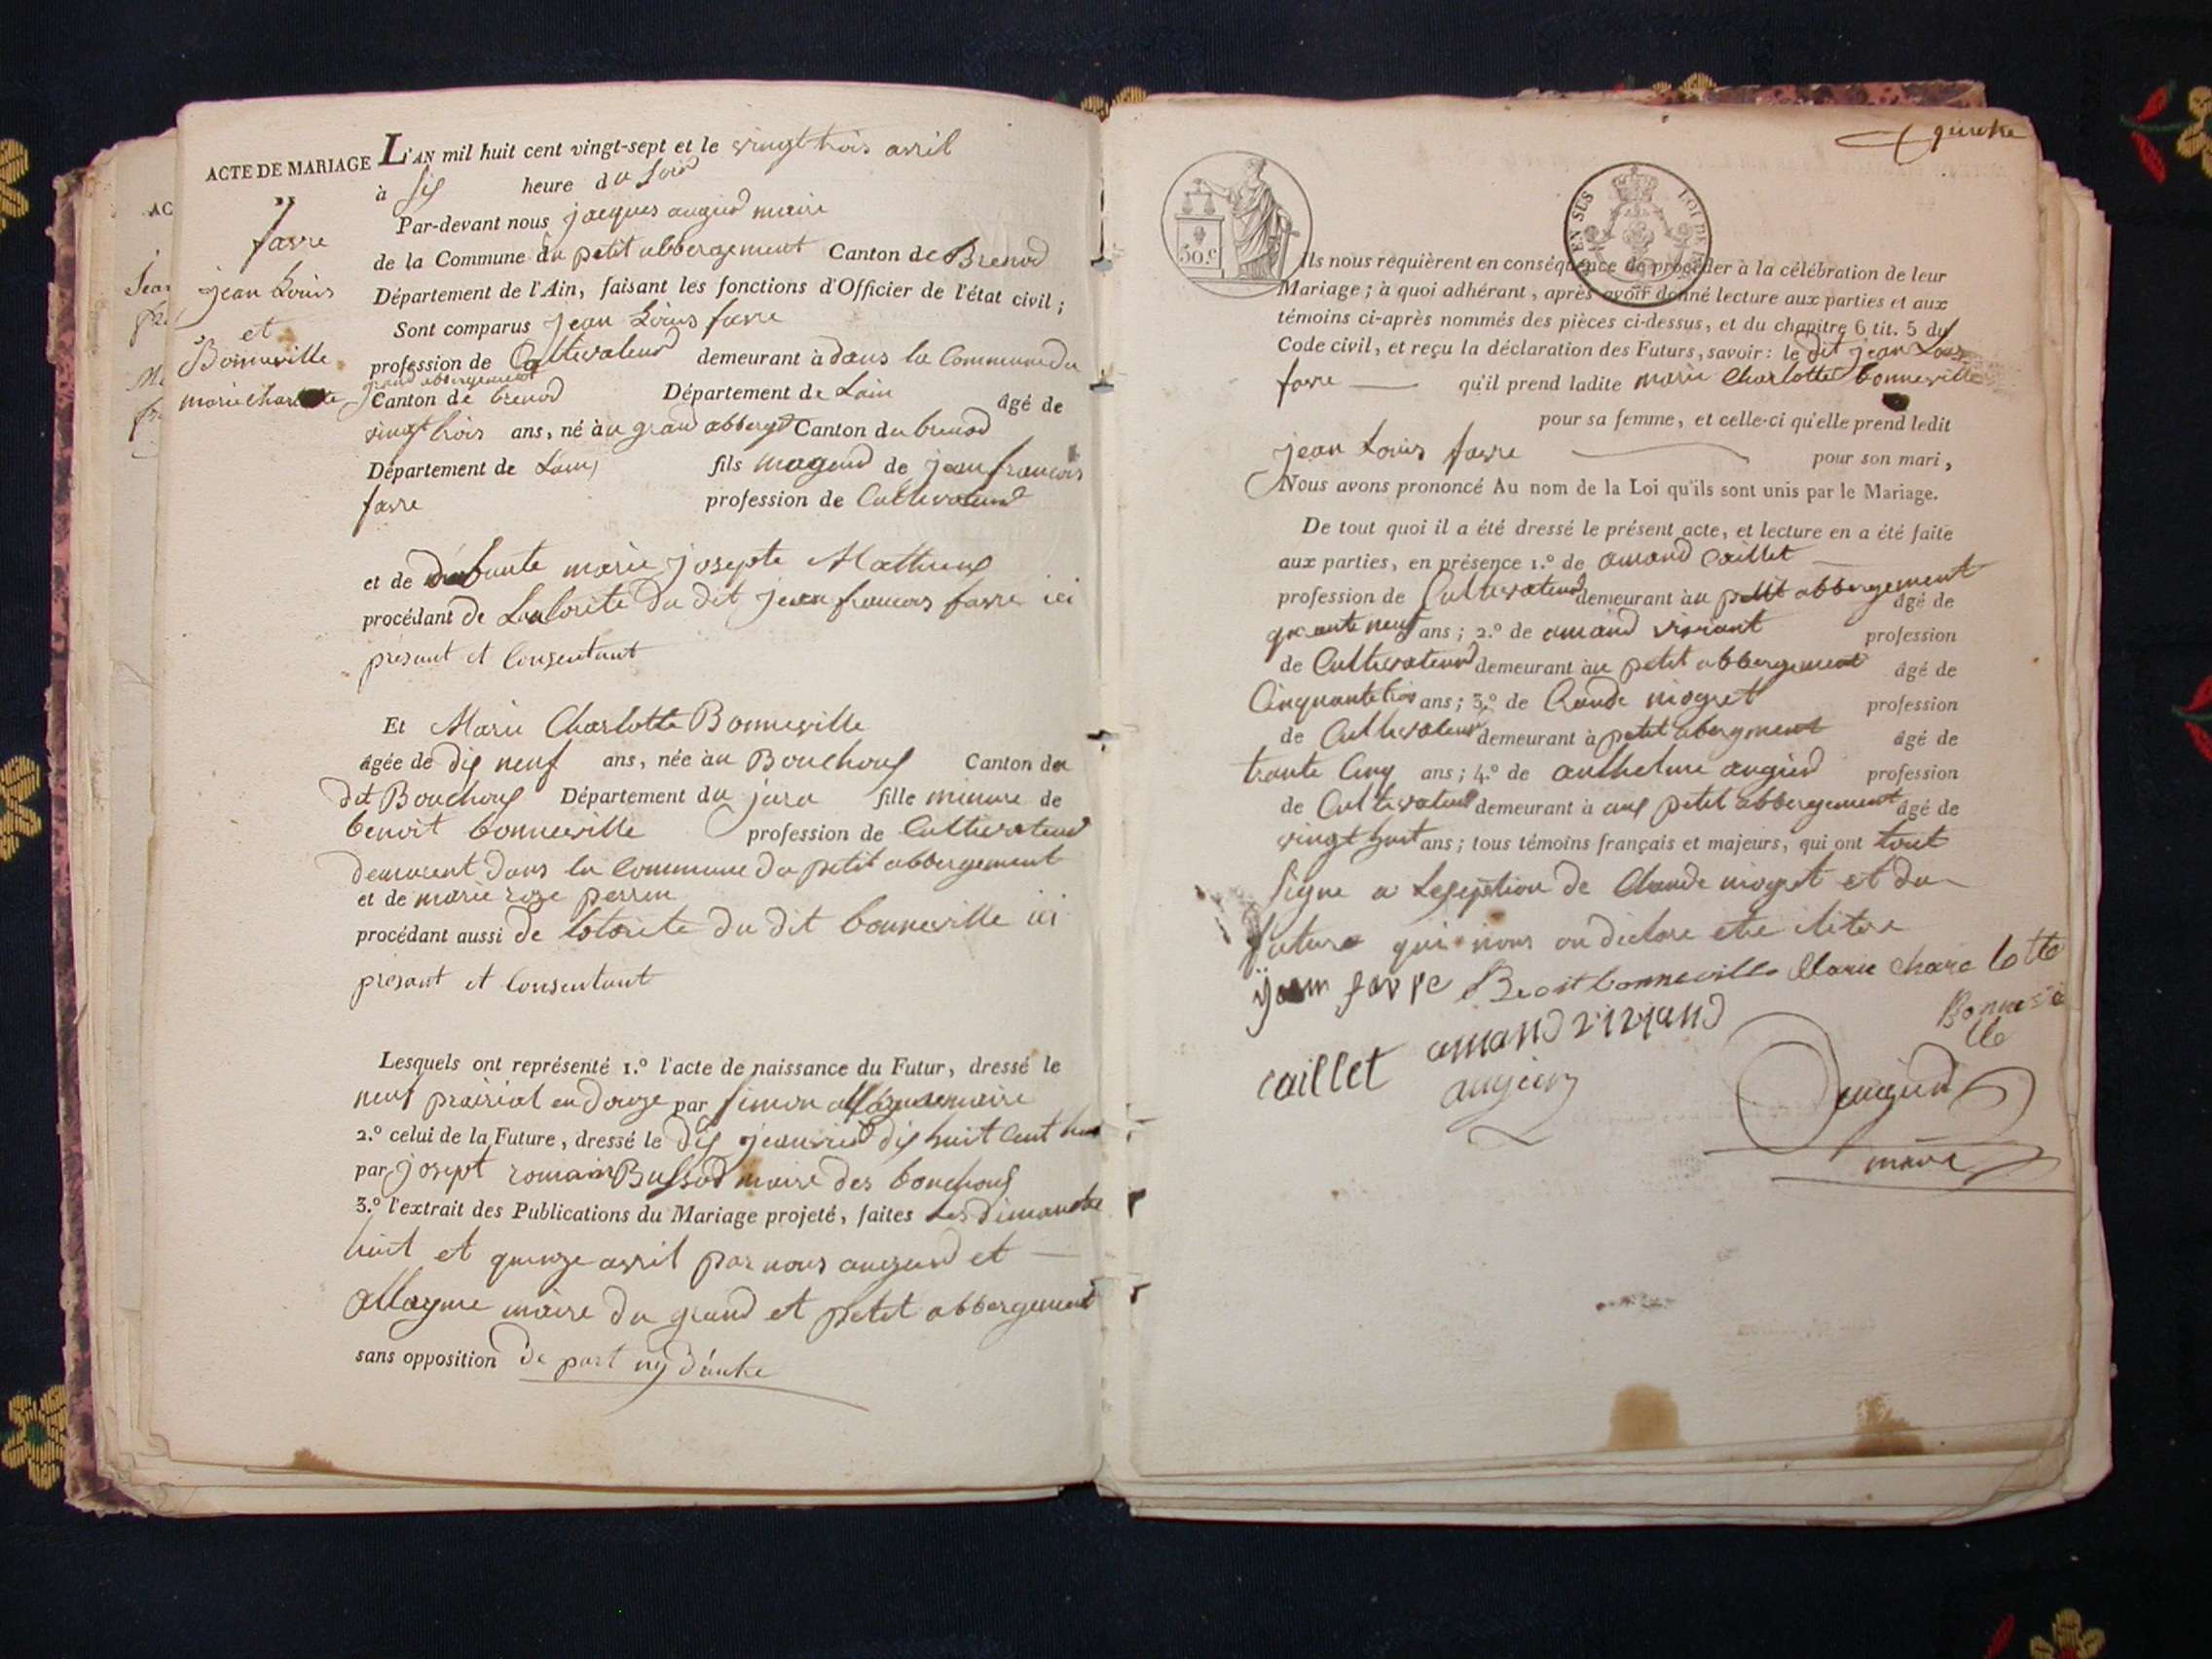 ACTE DE MARIAGE
7
favre
jean Louis
et
Bonneville
marie charlotte
L'AN mil huit cent vingt-sept et le vingt trois avril
à six heure du soir
Par-devant nous jacques augierd maire
de la Commune du petit abbergement Canton de Brenod
Département de l'Ain, faisant les fonctions d'Officier de l'état civil;
Sont comparus Jean Louis favre
profession de Cultivateur demeurant à dans la Commune du
grand abbergement
Canton de brenod Département de Lain âgé de
vingt trois ans, né à u grand abbergt Canton du brenod
Département de Lain fils mageur de jean francois
favre profession de Cultivateur
et de defunte marie josepte Mathieux
procédant de Lautorite du dit jean francois favre ici
présant et Consentant
Et Marie Charlotte Bonneville
âgée de dix neuf ans, née à u Bouchoux Canton du
dit Bouchoux Département du jura fille minure de
benoit bonneville profession de Cultivateur
demeurent dans la Commune du petit abbergement
et de marie roze perrin
procédant aussi de lotorite du dit bonneville ici
présant et Consentant
Lesquels ont représenté 1.º l'acte de naissance du Futur, dressé le
neuf prairial en douze par simon allagme maire
2.º celui de la Future, dressé le dix jeanvier dix huit Cent huit
par josept romain Bussod maire des bouchoux
3.º l'extrait des Publications du Mariage projeté, faites Les dimanche
huit et quinze avril par nous augierd et
allagme maire du grand et petit abbergement
sans opposition de part ny d'autre
50.c
EN SUS LOI DE
Ils nous requièrent en conséquence de procéder à la célébration de leur
Mariage; à quoi adhérant, après avoir donné lecture aux parties et aux
témoins ci-après nommés des pièces ci-dessus, et du chapitre 6 tit. 5 du
Code civil, et reçu la déclaration des Futurs, savoir: le dit jean Louis
favre qu'il prend ladite marie Charlotte bonneville
pour sa femme, et celle-ci qu'elle prend ledit
jean Louis favre pour son mari,
Nous avons prononcé Au nom de la Loi qu'ils sont unis par le Mariage.
De tout quoi il a été dressé le présent acte, et lecture en a été faite
aux parties, en présence 1.º de amand Caillet
profession de Cultivateur demeurant à u petit abbergement âgé de
neuf ans; 2.º de amand viviant profession
de Cultivateur demeurant à u petit abbergement âgé de
Cinquante trois ans; 3.º de Claude niogret profession
de Cultivateur demeurant à petit abergment âgé de
trante Cinq ans; 4.º de anthelme augierd profession
de Cultivateur demeurant à aux petit abbergement âgé de
vingt huit ans; tous témoins français et majeurs, qui ont tout
signe a Lexseption de Claude niogret et du
future qui nous on declare etre iliture
favre Benoit bonneville Marie chare lotte
Bonnevi
lle
caillet amand viviand
augierd
augierd
maire